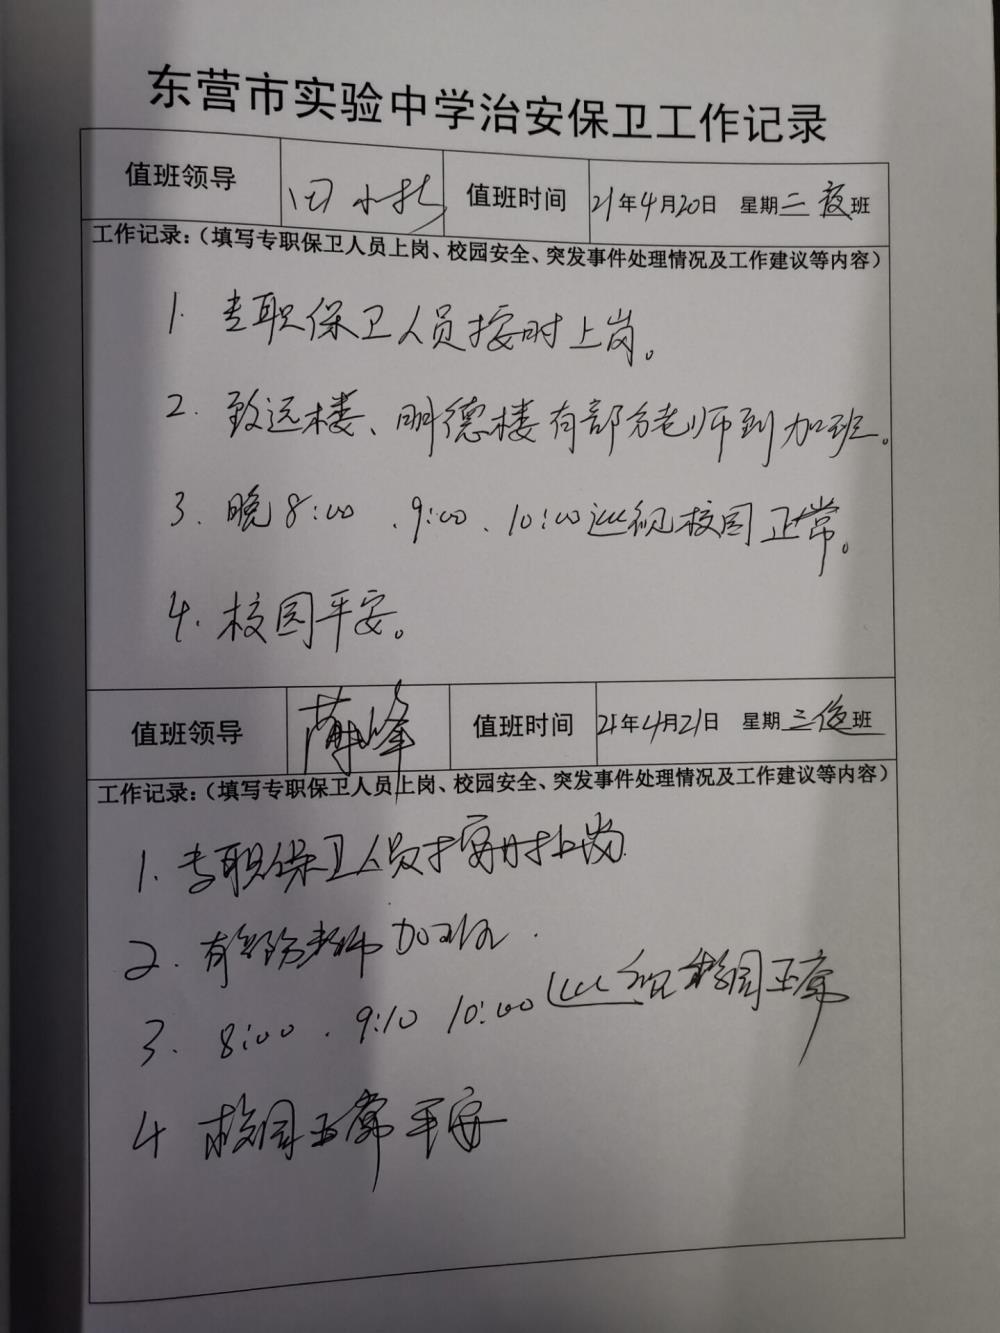 东营市实验中学治安保卫工作记录
值班领导 田小 值班时间 21年4月20日 星期二夜班
工作记录：（填写专职保卫人员上岗、校园安全、突发事件处理情况及工作建议等内容）
1. 专职保卫人员按时上岗。
2. 致远楼、明德楼有部分老师到加班。
3. 晚8:00、9:00、10:00巡视校园正常。
4. 校园平安。
值班领导 峰 值班时间 21年4月21日 星期三夜班
工作记录：（填写专职保卫人员上岗、校园安全、突发事件处理情况及工作建议等内容）
1. 专职保卫人员按时上岗
2. 有部分老师加班.
3. 8:00、9:10 10:00巡视校园正常
4 校园正常平安